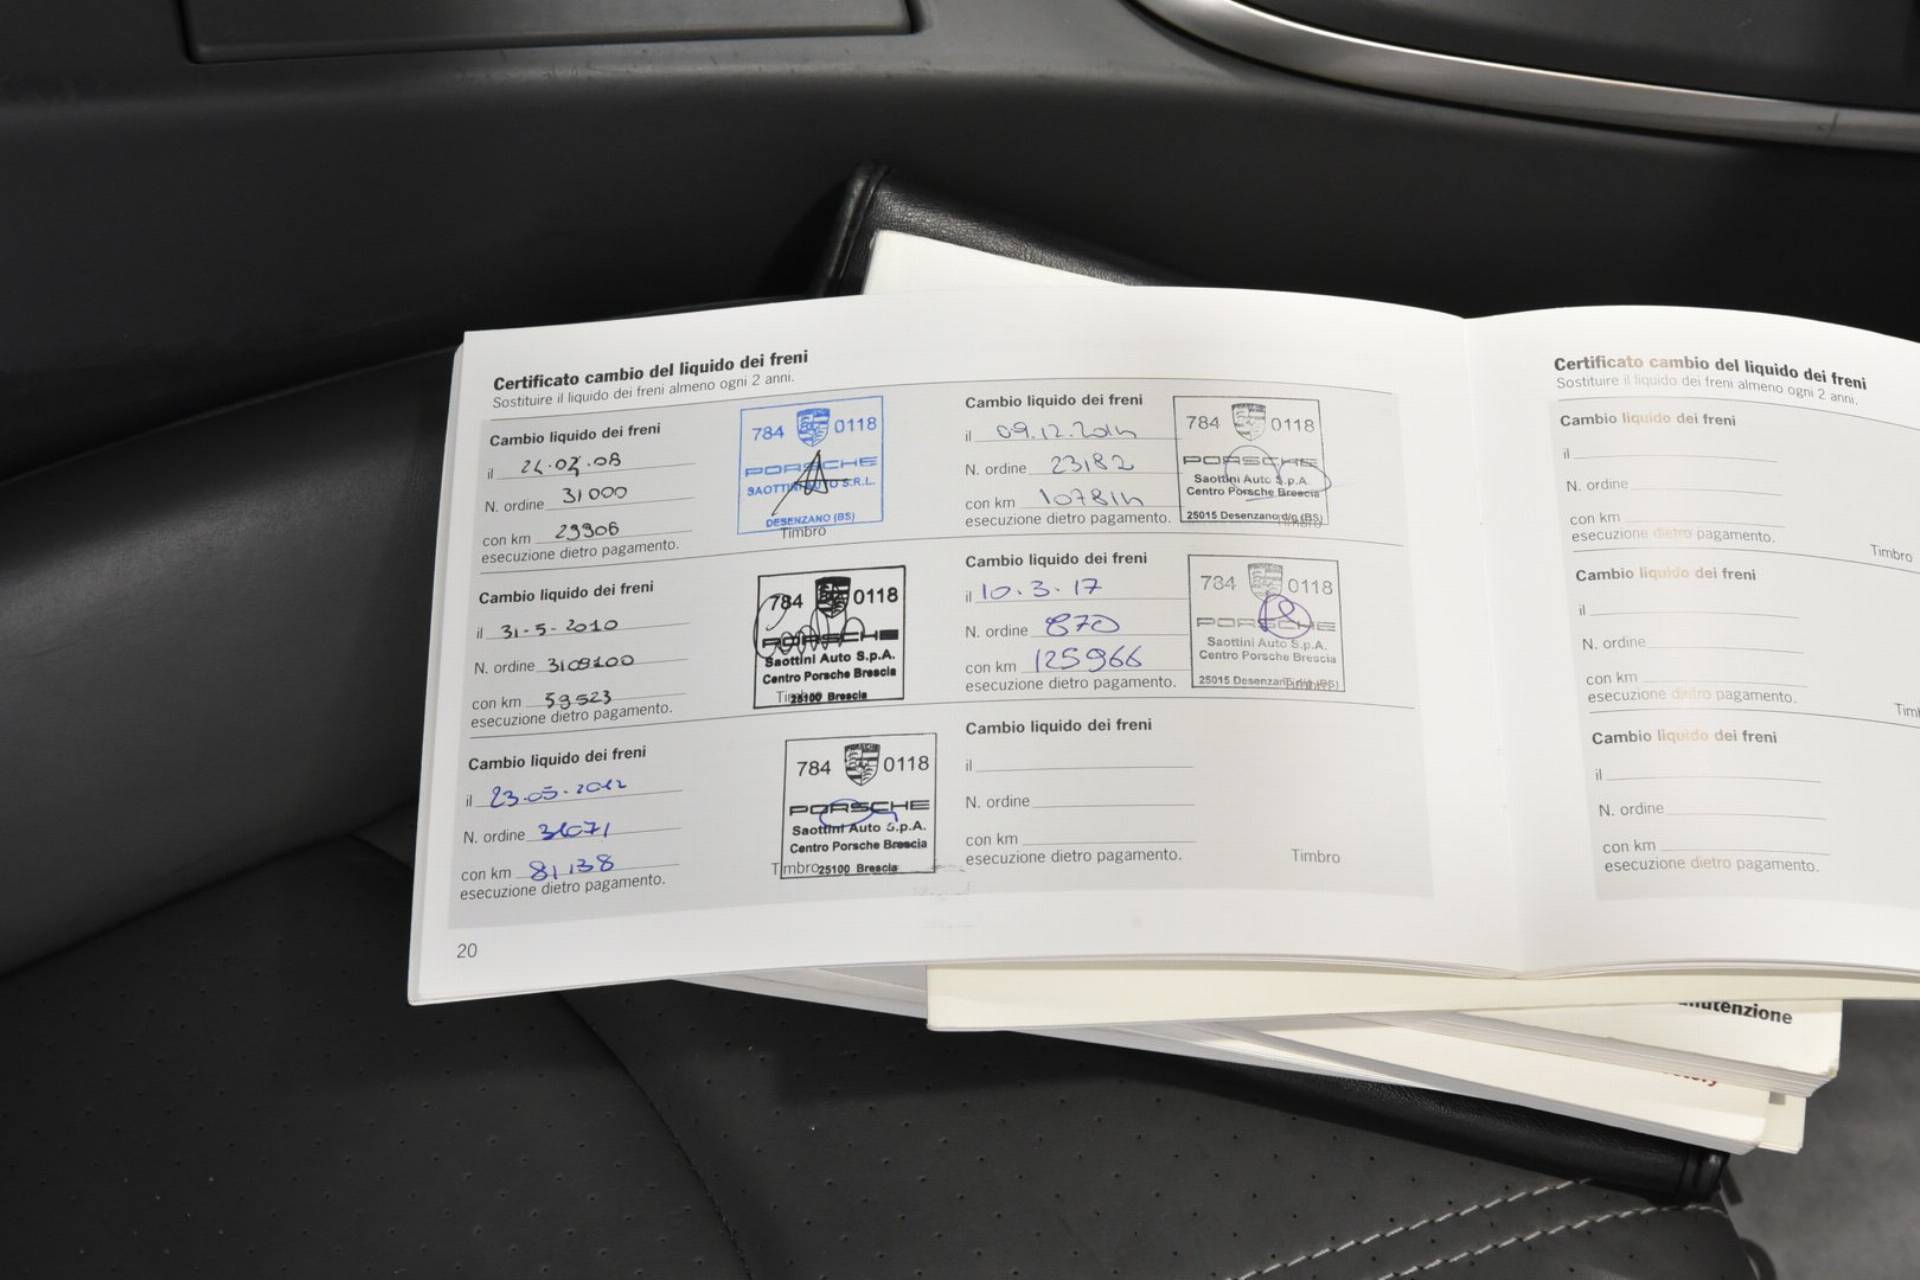 Certificato cambio del liquido dei freni
Sostituire il liquido dei freni almeno ogni 2 anni.
Cambio liquido dei freni
il
N. ordine 31000
con km 29906
esecuzione dietro pagamento.
784 0118
PORSCHE
SAOTTINI AUTO S.R.L.
DESENZANO (BS)
Timbro
Cambio liquido dei freni
il 31-5-2010
N. ordine 3109100
con km 59523
esecuzione dietro pagamento.
784 0118
PORSCHE
Saottini Auto S.p.A.
Centro Porsche Brescia
25100 Brescia
Timbro
Cambio liquido dei freni
il 23.05.2012
N. ordine
con km 81138
esecuzione dietro pagamento.
784 0118
PORSCHE
Saottini Auto S.p.A.
Centro Porsche Brescia
Timbro 25100 Brescia
20
Cambio liquido dei freni
il 09.12.2014
N. ordine 23182
con km 107814
esecuzione dietro pagamento.
784 0118
PORSCHE
Saottini Auto S.p.A.
Centro Porsche Brescia
25015 Desenzano d/g (BS)
Timbro
Cambio liquido dei freni
il 10.3.17
N. ordine 870
con km 125966
esecuzione dietro pagamento.
784 0118
PORSCHE
Saottini Auto S.p.A.
Centro Porsche Brescia
25015 Desenzano d/g (BS)
Timbro
Cambio liquido dei freni
il
N. ordine
con km
esecuzione dietro pagamento.
Timbro
Certificato cambio del liquido dei freni
Sostituire il liquido dei freni almeno ogni 2 anni.
Cambio liquido dei freni
il
N. ordine
con km
esecuzione dietro pagamento.
Timbro
Cambio liquido dei freni
il
N. ordine
con km
esecuzione dietro pagamento.
Timb
Cambio liquido dei freni
il
N. ordine
con km
esecuzione dietro pagamento.
nutenzione